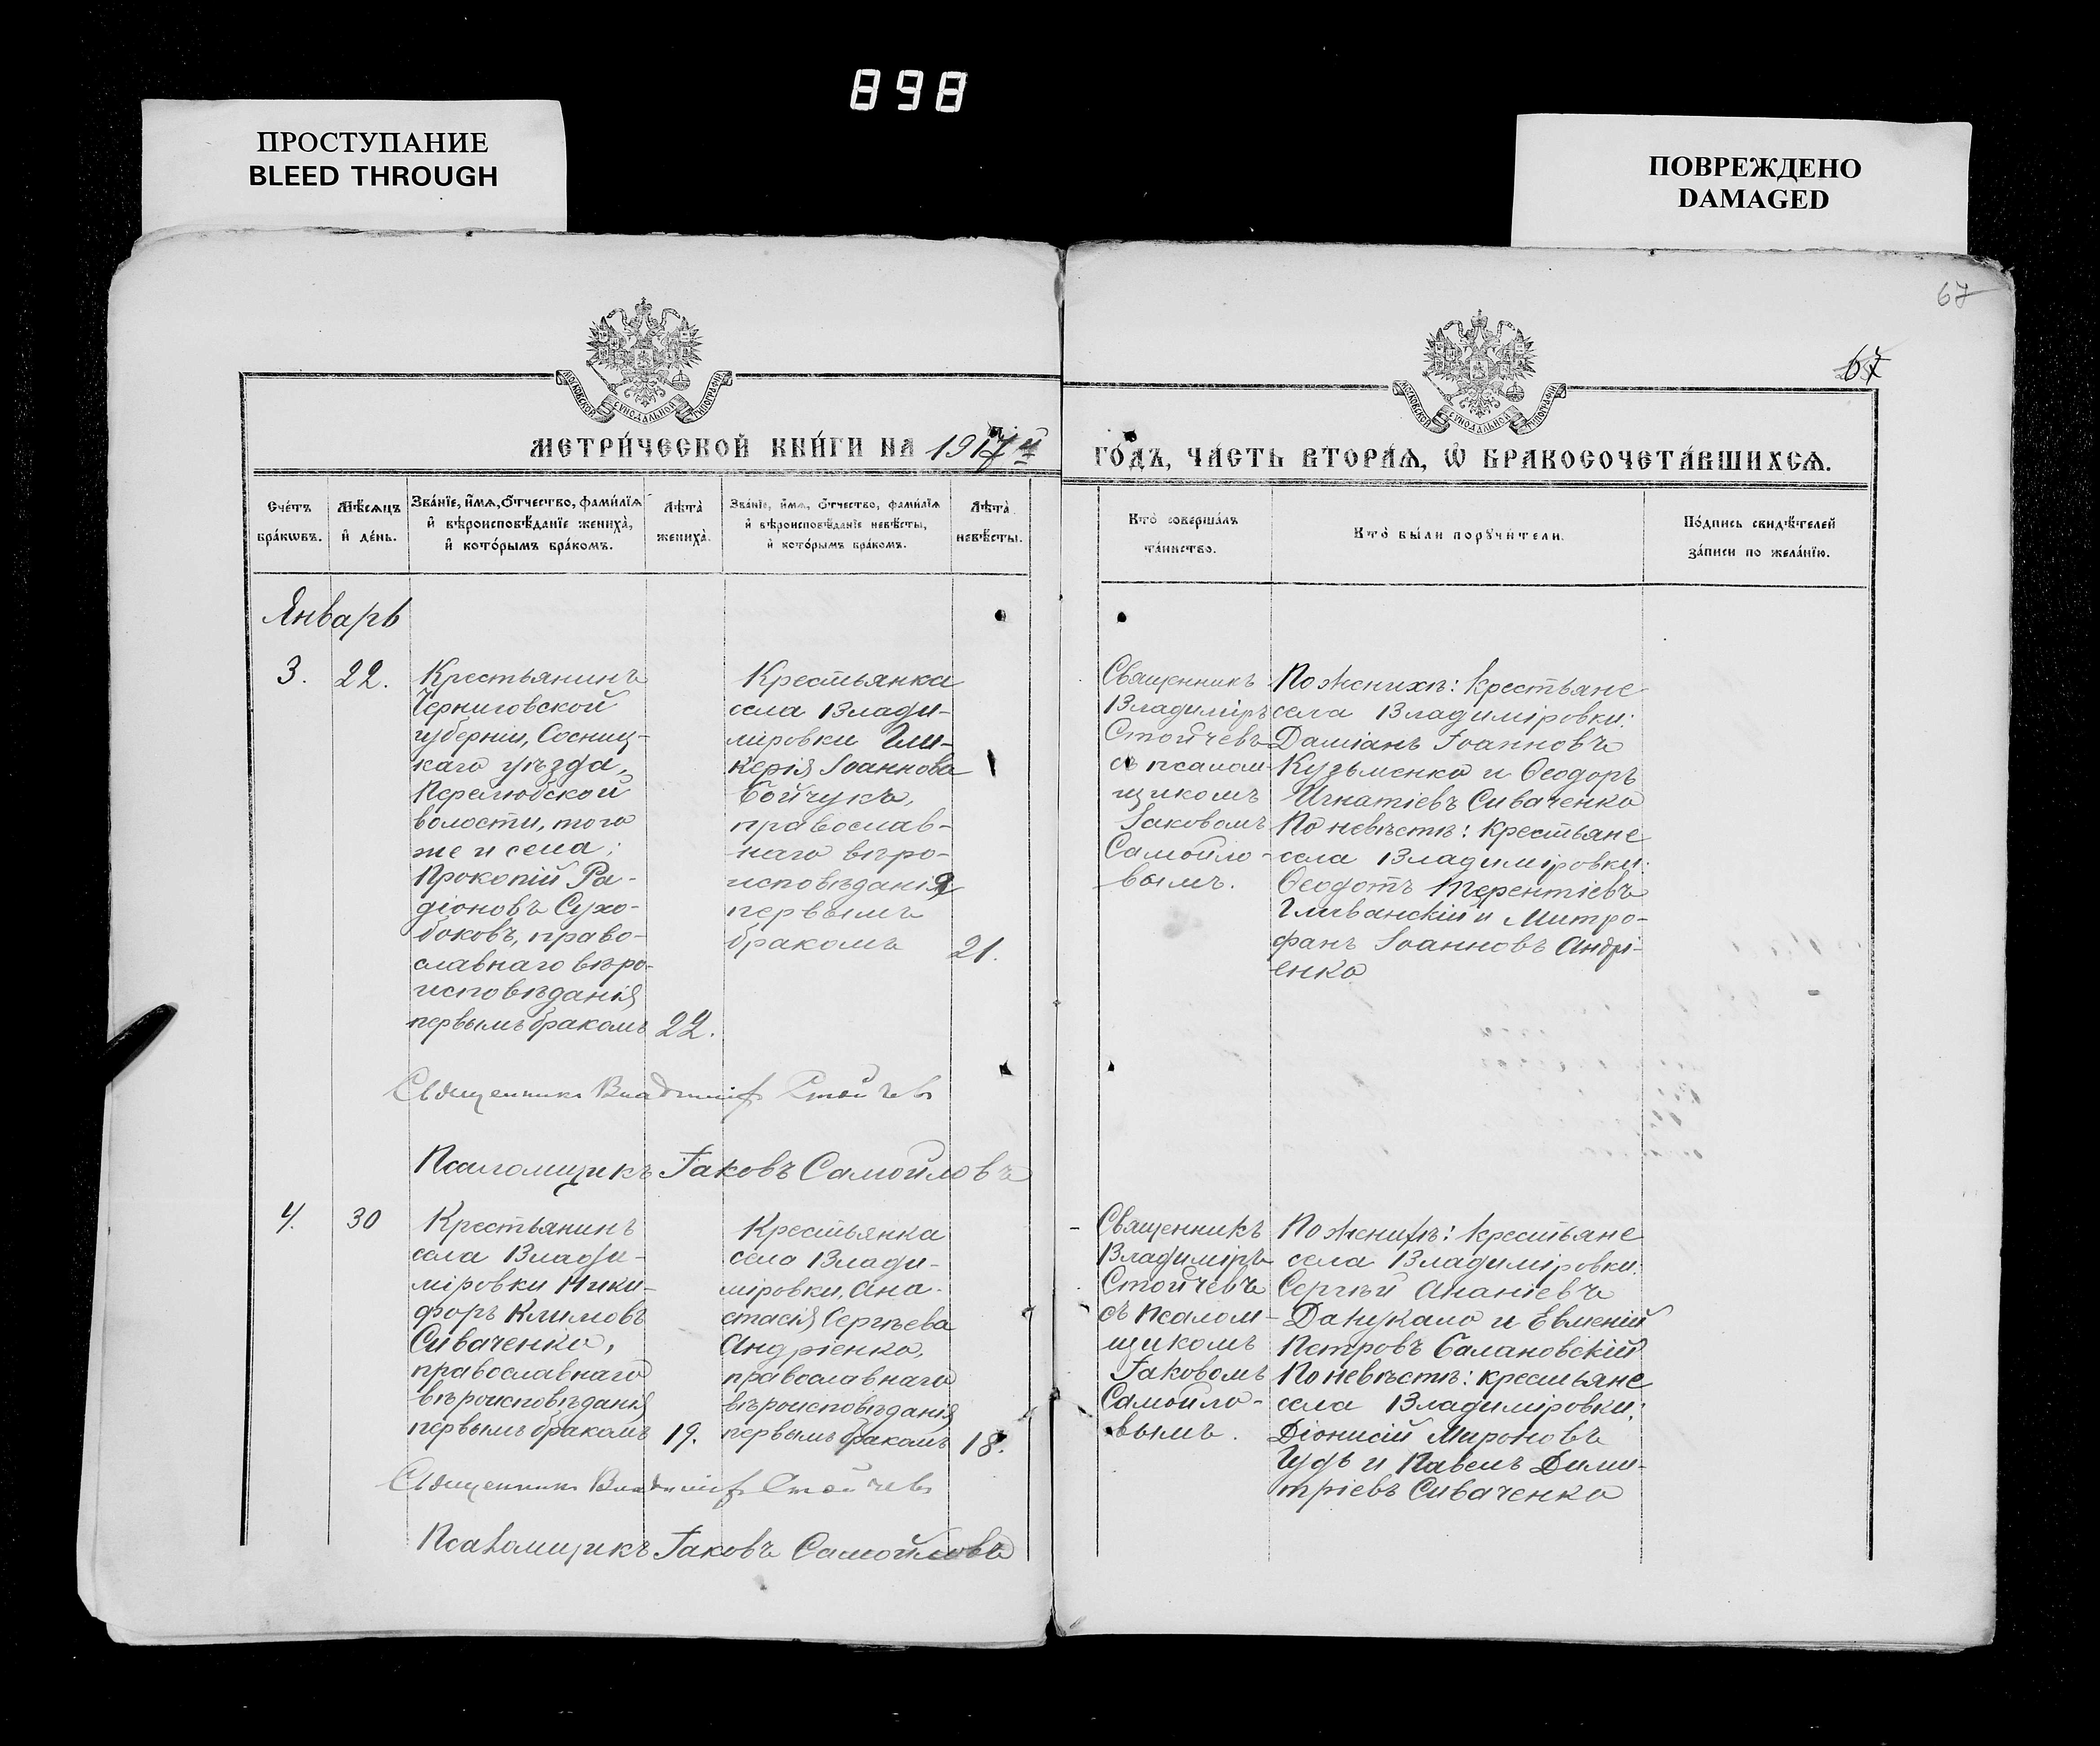 898
ПРОСТУПАНИЕ
BLEED THROUGH
ПОВРЕЖДЕНО
DAMAGED
67
67
МОСКОВСКОЙ СѴНОДАЛЬНОЙ ТИПОГРАФІИ
МОСКОВСКОЙ СѴНОДАЛЬНОЙ ТИПОГРАФІИ
МЕТРИ́ЧЕСКОЙ КНИ́ГИ НА 1917й
ГО́ДЪ, ЧА́СТЬ ВТОРА́Я, Ѡ БРАКОСОЧЕТА́ВШИХСѦ.
Сче́тъ
бра́кѡвъ.
Мѣ́сѧцъ
и҆ де́нь.
Зва́нїе, и҆́мѧ, ѻ҆́тчество, фами́лїѧ
и҆ вѣроисповѣ́данїе жениха̀,
и҆ кото́рымъ бра́комъ.
Лѣ́та
жениха̀.
Зва́нїе, и҆́мѧ, ѻ҆́тчество, фами́лїѧ
и҆ вѣроисповѣ́данїе невѣ́сты,
и҆ кото́рымъ бра́комъ.
Лѣ́та
невѣ́сты.
Кто̀ соверша́лъ
та́инство.
Кто̀ бы́ли порꙋчи́тели.
По́дпись свидѣ́телей
за́писи по жела́нїю.
Январь
3.
22.
Крестьянинъ
Черниговской
губерніи, Сосниц-
каго уѣзда,
Перелюбской
волости, того
же и села:
Прокопій Ра-
діоновъ Сухо-
боковъ, право-
славнаго вѣро-
исповѣданія
первымъ бракомъ
22.
Крестьянка
села Влади-
міровки Гли-
керія Іоаннова
Бойчукъ,
православ-
наго вѣро-
исповѣданія
первымъ
бракомъ
21.
Священникъ
Владиміръ
Стойчевъ
съ псалом-
щикомъ
Іаковомъ
Самойло-
вымъ.
По женихѣ: крестьяне
села Владиміровки:
Даміанъ Іоанновъ
Кузьменко и Ѳеодоръ
Игнатіевъ Сиваченко
По невѣстѣ: крестьяне
села Владиміровки:
Ѳеодотъ Терентіевъ
Гливанскій и Митро-
фанъ Іоанновъ Андрі-
енко
Священникъ Владиміръ Стойчевъ
Псаломщикъ Іаковъ Самойловъ
4.
30
Крестьянинъ
села Влади-
міровки Ники-
форъ Климовъ
Сиваченко,
православнаго
вѣроисповѣданія
первымъ бракомъ
19.
Крестьянка
села Влади-
міровки, Ана-
стасія Сергѣева
Андріенко,
православнаго
вѣроисповѣданія
первымъ бракомъ
18.
Священникъ
Владиміръ
Стойчевъ
съ псалом-
щикомъ
Іаковомъ
Самойло-
вымъ.
По женихѣ: крестьяне
села Владиміровки:
Сергѣй Ананіевъ
и Евмений
Петровъ Балановскій
По невѣстѣ: крестьяне
села Владиміровки:
Діонисій Мироновъ
Гудь и Павелъ Дими-
тріевъ Сиваченко
Священникъ Владиміръ Стойчевъ
Псаломщикъ Іаковъ Самойловъ